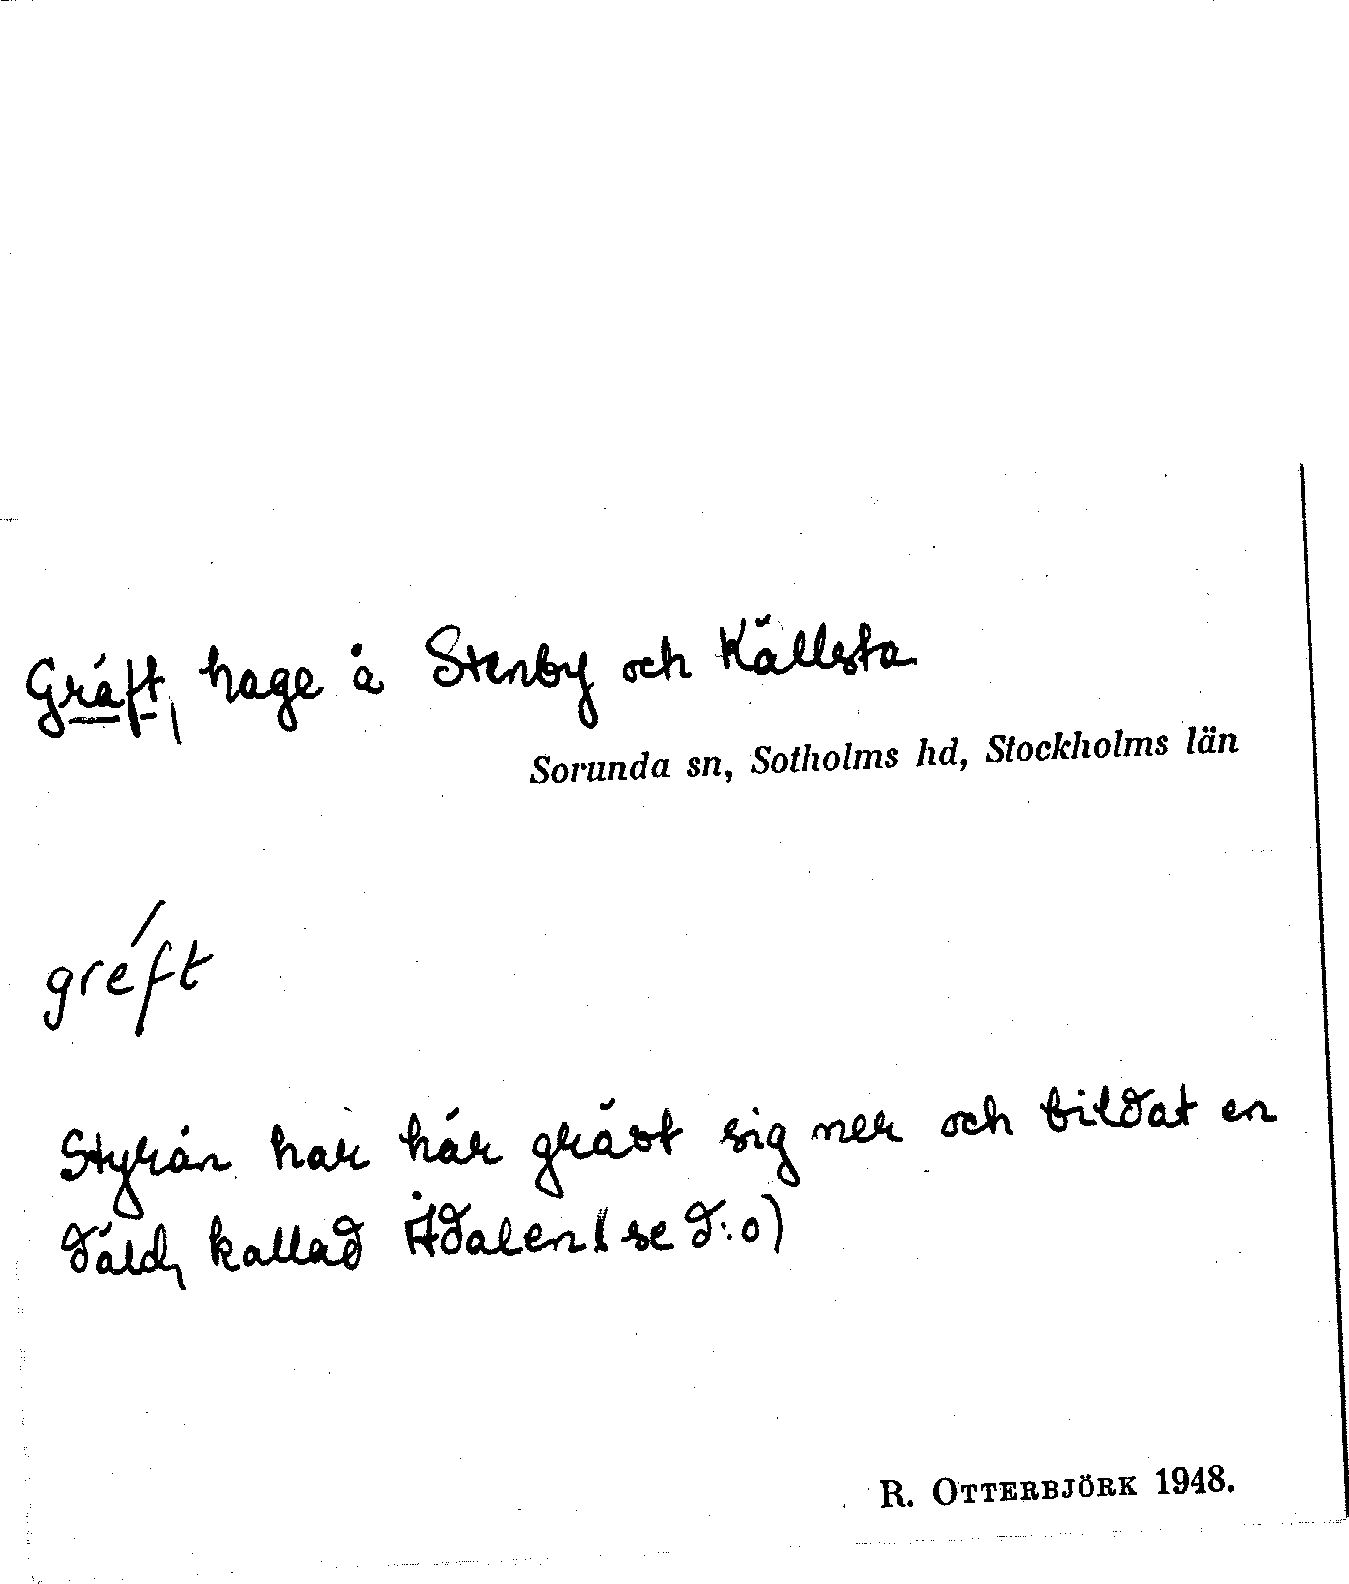 Gräft, hage å Stenby och Källsta
Sorunda sn, Sotholms hd, Stockholms län
gréft
Styrån har här grävt sig ner och bildat en
däld, kallad Ådalen (se d:o)
R. OTTERBJÖRK 1948.